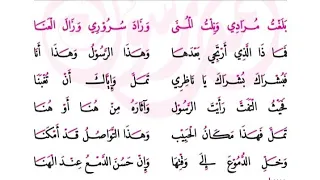 بَلَغْتُ مُرَادِي وَنِلْتُ الْمُنَى وَزَادَ سُرُوْرِي وَزَالَ الْعَنَا
فَمَا ذَا الَّذِي أَرْتَجِي بَعْدَهَا وَهَذَا الرَّسُوْلُ وَهَذَا أَنَا
فَبُشْرَاكَ بُشْرَاكَ يَا نَاظِرِي تَمَلَّ وَإِيَّاكَ أَنْ تُفْتَنَا
فَحَيْثُ الْتَفَتَّ رَأَيْتَ الرَّسُوْلَ وَآثَارَهُ مِنْ هُنَا أَوْ هُنَا
تَمَلَّ فَهَذَا مَكَانُ الْحَبِيْبِ وَهَذَا التَّوَاصُلُ قَدْ أَمْكَنَا
وَخَلِّ الدُّمُوْعَ وَفِيْهَا وَإِنْ حَسُنَ الدَّمْعُ عِنْدَ الْهَنَا